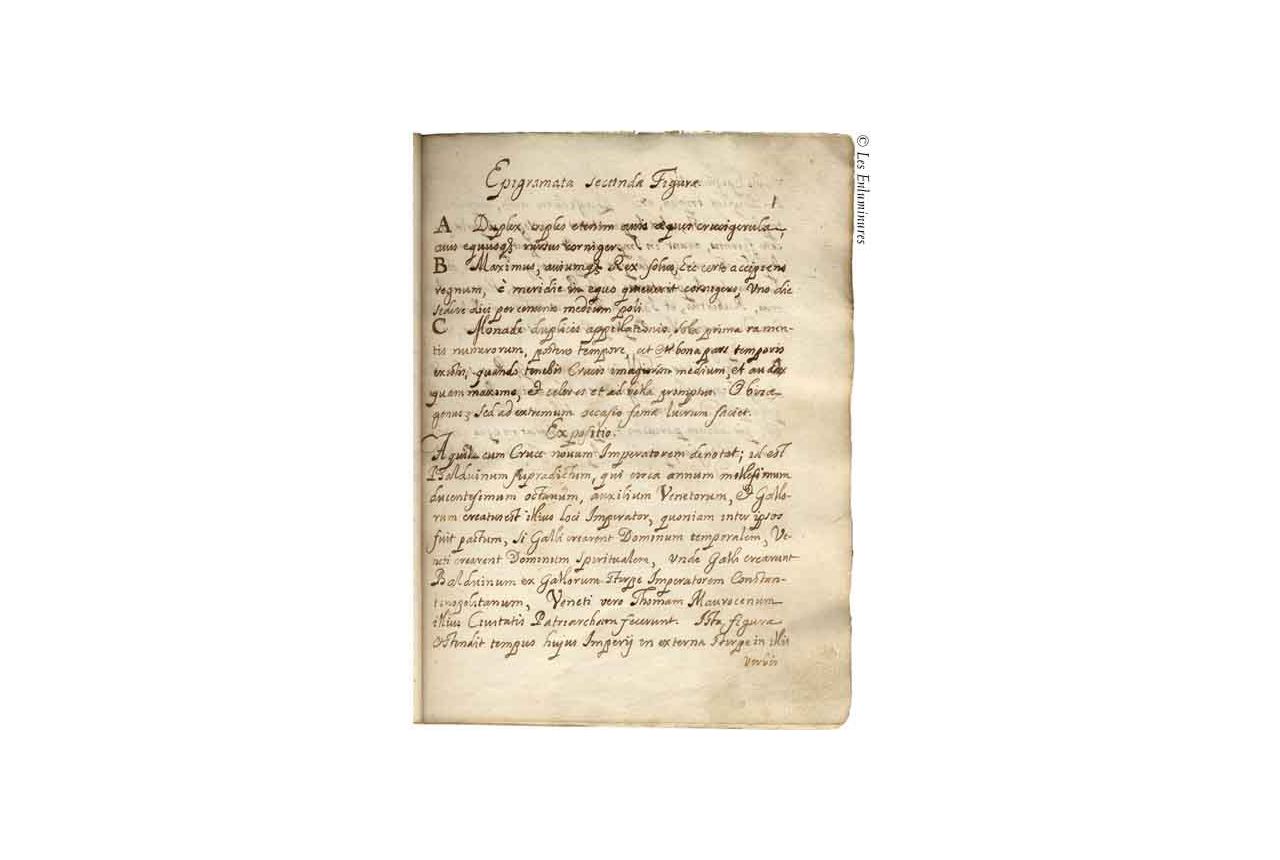 Epigramata secundæ Figuræ
A Duplex, triplex etenim auis æquus crucigerula,
auis equusq3 rursus corniger.
B Maximus, auiumq3 Rex solus, hic certe accipiens
regnum, è meridie in equo corniger, Uno die
medium poli.
C Monade duplicis appellationis. Sola prima
numerorum, tempore, et bona pars temporis
quando tenebis Crucis imaginem medium, et audax
quam maxime, et celeres et ad bella promptus.
genus; Sed ad extremum occasio famæ lucrum faciet.
Expositio.
Aquila cum Cruce nouum Imperatorem denotat; id est
Balduinum supradictum, qui circa annum millesimum
ducentesimum octauum, auxilium Venetorum, & Gallo-
rum creatus est illius loci Imperator, quoniam inter ipsos
fuit pactum, si Galli crearent Dominum temporalem, Ve-
neti crearent Dominum Spiritualem, Unde Galli crearunt
Balduinum ex Gallorum stirpe Imperatorem Constan-
tinopolitanum, Veneti vero Thomam Maurocenum
illius Ciuitatis Patriarcham fecerunt. Ista figura
ostendit tempus hujus Imperij in externa stirpe in illis
verbis
© Les Enluminures